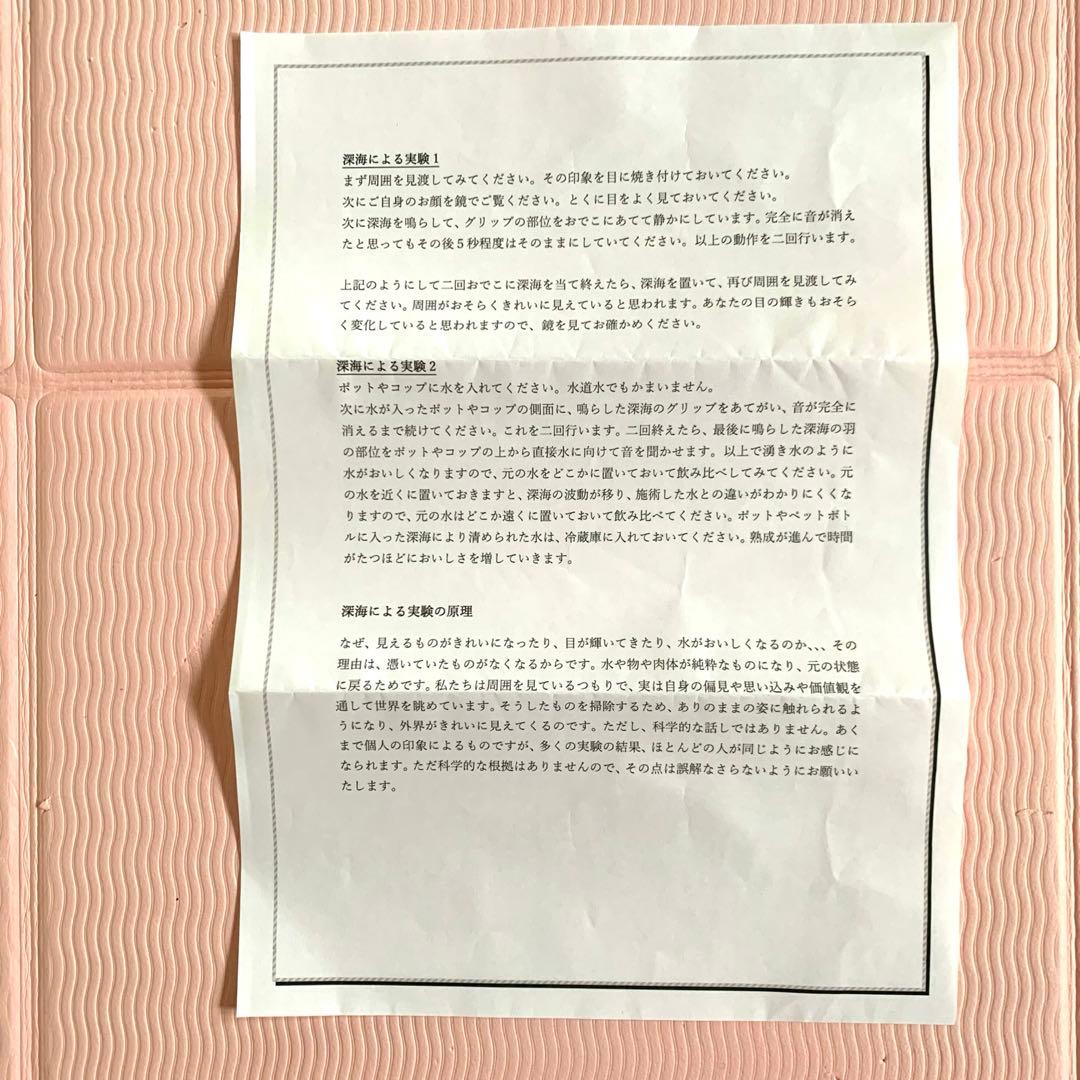 深海による実験1
まず周囲を見渡してみてください。その印象を目に焼き付けておいてください。
次にご自身のお顔を鏡でご覧ください。とくに目をよく見ておいてください。
次に深海を鳴らして、グリップの部位をおでこにあてて静かにしています。完全に音が消え
たと思ってもその後5秒程度はそのままにしていてください。以上の動作を二回行います。
上記のようにして二回おでこに深海を当て終えたら、深海を置いて、再び周囲を見渡してみ
てください。周囲がおそらくきれいに見えていると思われます。あなたの目の輝きもおそら
く変化していると思われますので、鏡を見てお確かめください。
深海による実験2
ポットやコップに水を入れてください。水道水でもかまいません。
次に水が入ったポットやコップの側面に、鳴らした深海のグリップをあてがい、音が完全に
消えるまで続けてください。これを二回行います。二回終えたら、最後に鳴らした深海の羽
の部位をポットやコップの上から直接水に向けて音を聞かせます。以上で湧き水のように
水がおいしくなりますので、元の水をどこかに置いておいて飲み比べしてみてください。元
の水を近くに置いておきますと、深海の波動が移り、施術した水との違いがわかりにくくな
りますので、元の水はどこか遠くに置いておいて飲み比べてください。ポットやペットボト
ルに入った深海により清められた水は、冷蔵庫に入れておいてください。熟成が進んで時間
がたつほどにおいしさを増していきます。
深海による実験の原理
なぜ、見えるものがきれいになったり、目が輝いてきたり、水がおいしくなるのか、、、その
理由は、憑いていたものがなくなるからです。水や物や肉体が純粋なものになり、元の状態
に戻るためです。私たちは周囲を見ているつもりで、実は自身の偏見や思い込みや価値観を
通して世界を眺めています。そうしたものを掃除するため、ありのままの姿に触れられるよ
うになり、外界がきれいに見えてくるのです。ただし、科学的な話しではありません。あく
まで個人の印象によるものですが、多くの実験の結果、ほとんどの人が同じようにお感じに
なられます。ただ科学的な根拠はありませんので、その点は誤解なさらないようにお願いい
たします。